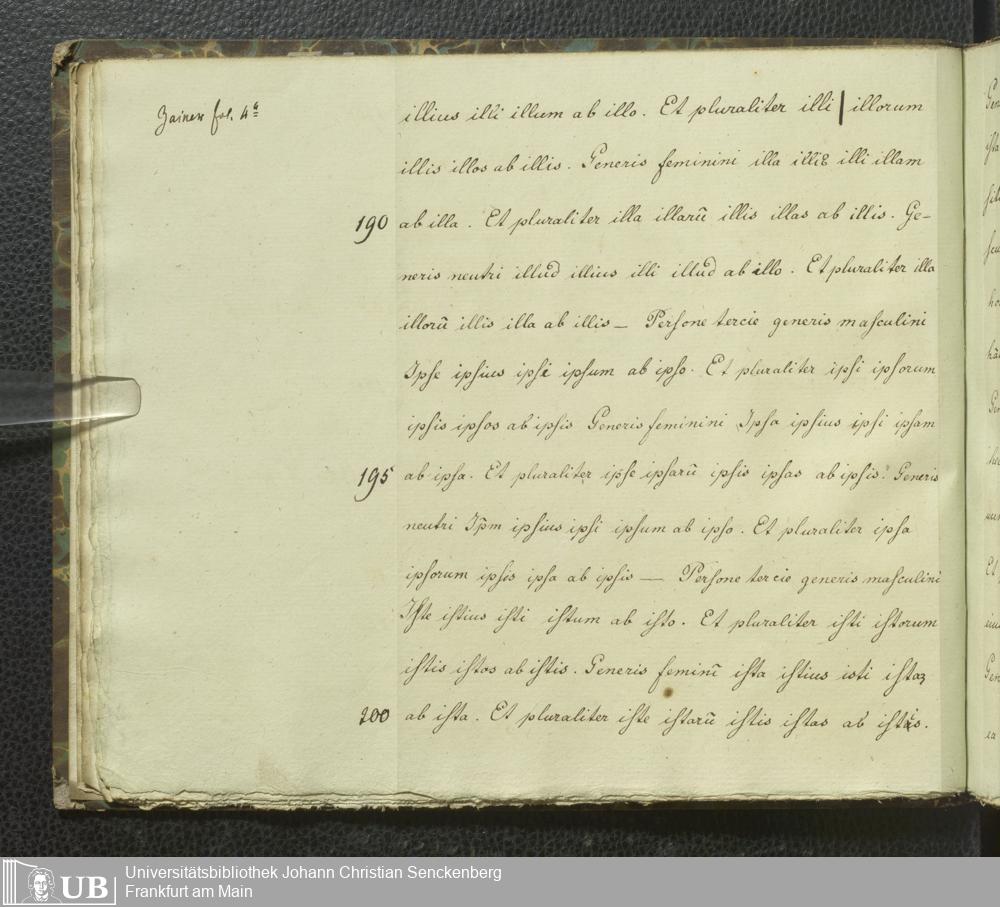 Zainer fol. 4a
illius illi illum ab illo. Et pluraliter illi | illorum
illis illos ab illis. Generis feminini illa illiꝰ illi illam
190 ab illa. Et pluraliter illa illarū illis illas ab illis. Ge-
neris neutri illud illius illi illud ab illo. Et pluraliter illa
illorū illis illa ab illis — Perſone tercie generis maſculini
Ipſe ipſius ipſi ipſum ab ipſo. Et pluraliter ipſi ipſorum
ipſis ipſos ab ipſis Generis feminini Ipſa ipſius ipſi ipſam
195 ab ipſa. Et pluraliter ipſe ipſarū ipſis ipſas ab ipſis. Generis
neutri Ip̄m ipſius ipſi ipſum ab ipſo. Et pluraliter ipſa
ipſorum ipſis ipſa ab ipſis — Perſone tercie generis maſculini
Iſte iſtius iſti iſtum ab iſto. Et pluraliter iſti iſtorum
iſtis iſtos ab iſtis. Generis feminī iſta iſtius isti iſtaꝫ
200 ab iſta. Et pluraliter iſte iſtarū iſtis iſtas ab iſtis.
UB
Universitätsbibliothek Johann Christian Senckenberg
Frankfurt am Main